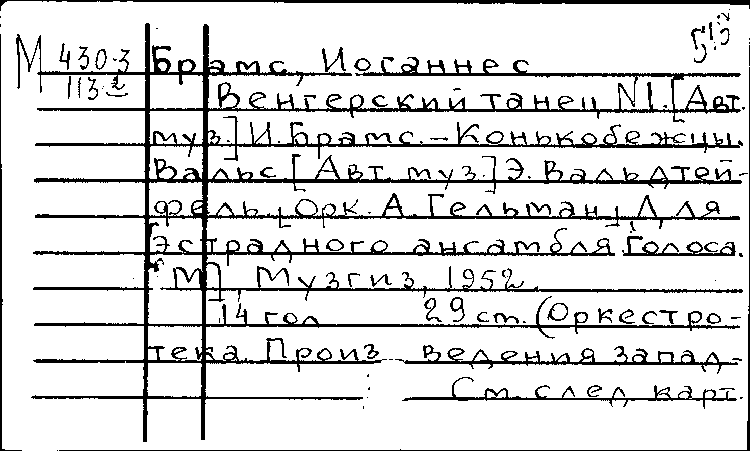 М 430-3 Брамс, Иоганнес
113-2 Венгерский танец N1. [Авт.
муз.] И. Брамс. – Конькобежцы.
Вальс. [Авт. муз.] Э. Вальдтей-
фель. [Орк. А. Гельман] Для
эстрадного ансамбля. Голоса.
[М], Музгиз, 1952.
14 гол 29 cm. (Оркестро-
тека. Произведения запад-
См. след. карт.